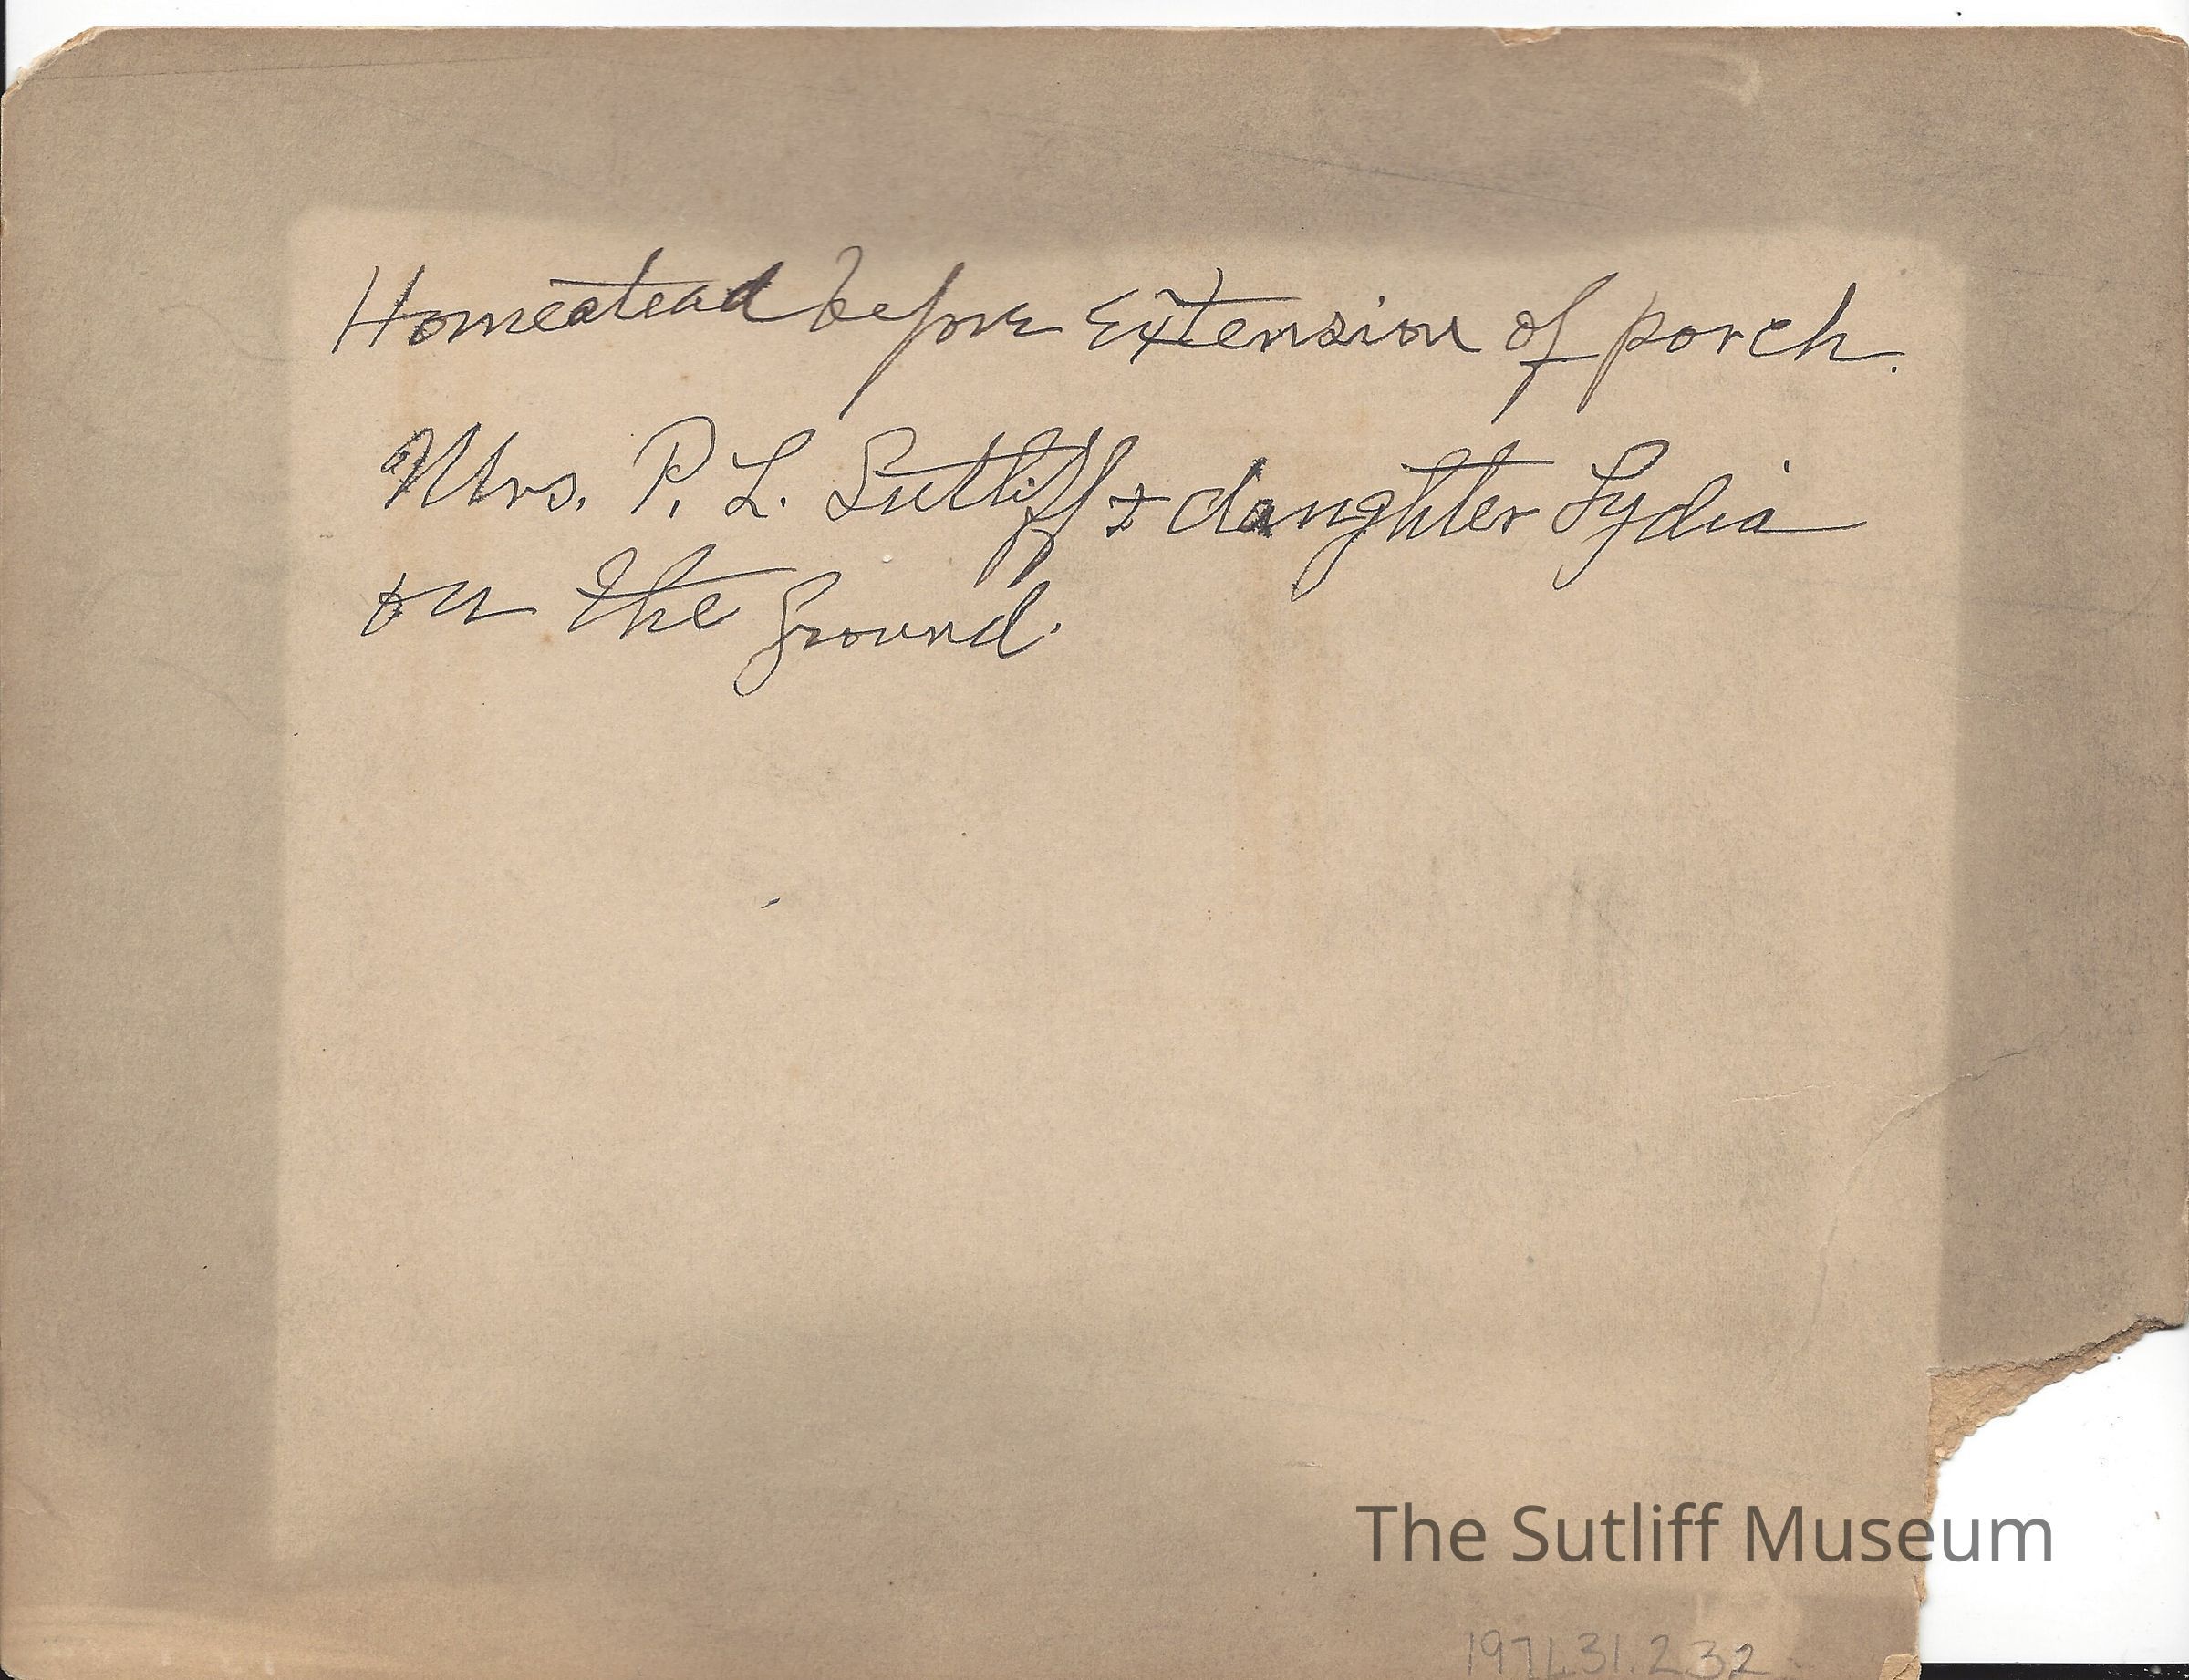 Homestead before Extension of porch.
Mrs. P. L. Sutliff & daughter Lydia
on the ground.
The Sutliff Museum
1971.31.232